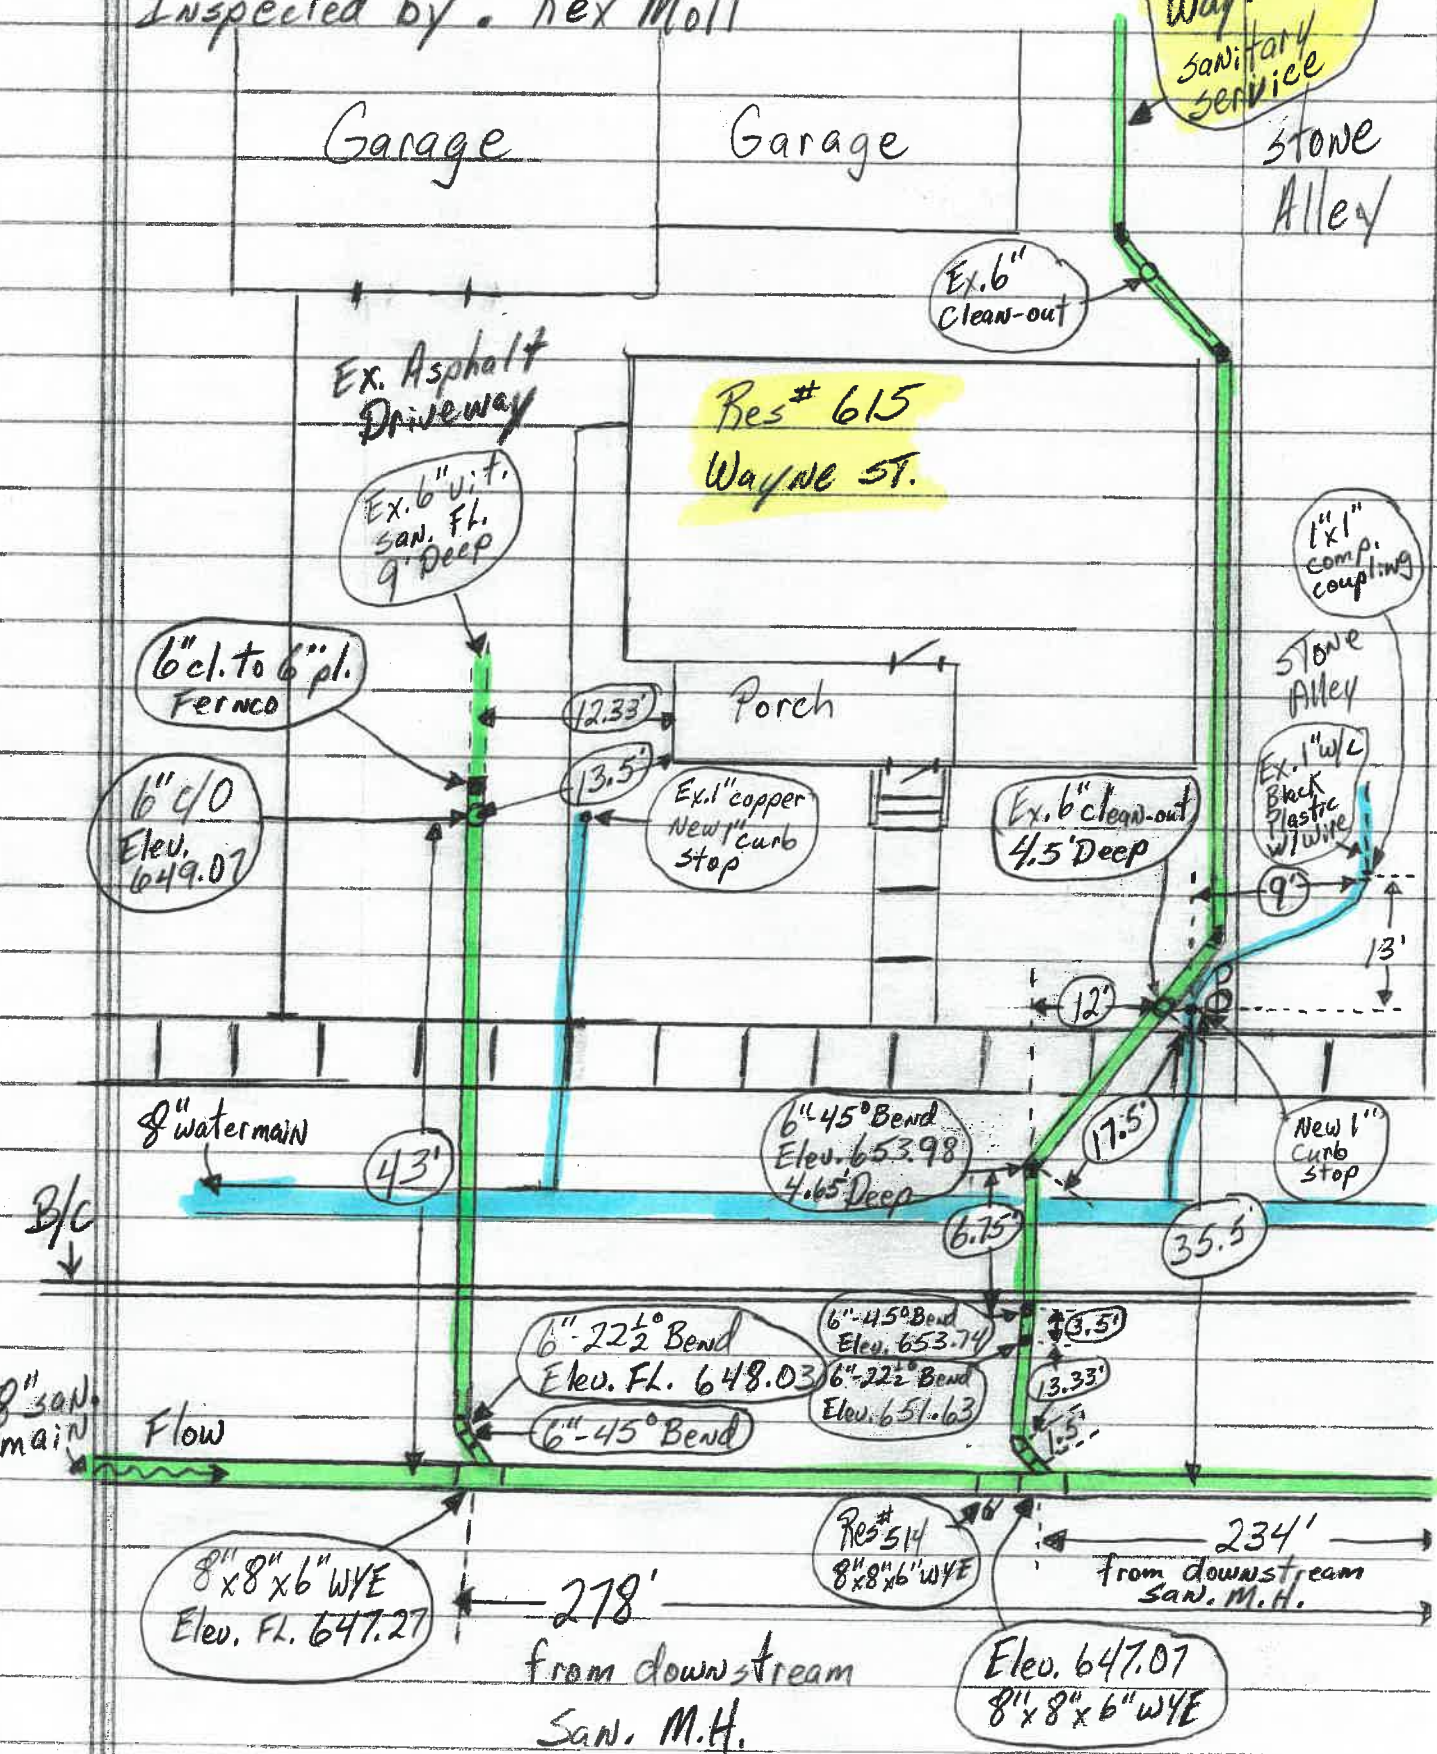 Inspected by. Rex Moll
Way
Sanitary
Service
Stone
Alley
Garage
Garage
Ex. 6"
Clean-out
Ex. Asphalt
Driveway
Res# 615
Wayne ST.
Ex. 6" vit.
san. FL.
9' Deep
1"x1"
comp.
coupling
6"cl. to 6"pl.
Fernco
12.33'
Porch
Stone
Alley
6" c/o
Elev.
649.07
13.5'
Ex. 1" copper
New 1" curb
stop
Ex. 6" clean-out
4.5' Deep
Ex. 1" w/L
Black
Plastic
w/wire
9'
13'
12'
8" watermain
43'
6"-45° Bend
Elev. 653.98
4.65' Deep
17.5'
New 1"
Curb
stop
B/C
6.75'
35.5'
6"-22½° Bend
Elev. FL. 648.03
6"-45° Bend
Elev. 653.74
3.5'
6"-22½° Bend
Elev. 651.63
13.33'
8" san.
main
Flow
6"-45° Bend
1.5'
8"x8"x6" WYE
Elev. FL. 647.27
278'
from downstream
San. M.H.
Res# 514
8"x8"x6" WYE
6'
234'
from downstream
San. M.H.
Elev. 647.07
8"x8"x6" WYE